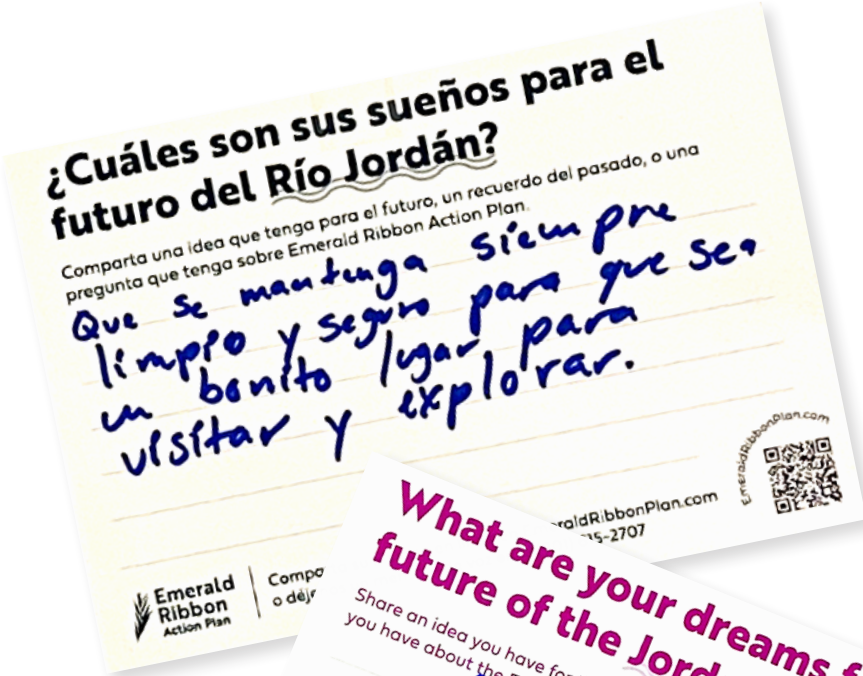 ¿Cuáles son sus sueños para el
futuro del Río Jordán?
Comparta una idea que tenga para el futuro, un recuerdo del pasado, o una
pregunta que tenga sobre Emerald Ribbon Action Plan.
Que se mantenga siempre
limpio y seguro para que sea
un bonito lugar para
visitar y explorar.
EmeraldRibbonPlan.com
Emerald
Ribbon
Action Plan
Compa
o déje
raldRibbonPlan.com
15-2707
What are your dreams f
future of the Jord
Share an idea you have for
you have about the